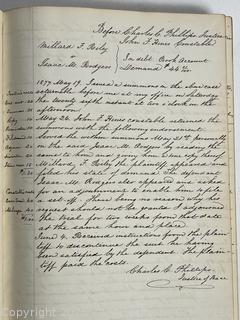 Before Charles C. Phillips Justice
John F. Hines Constable
Millard F. Roly
vs
Isaac M. Rodgers
In debt. Book Account
Demand $
1877 May 19. Issued a summons in the above case
returnable before me at my office on Saturday
the twenty sixth instant at two o'clock in the
afternoon.
May 26. John F. Hines constable returned the
summons with the following endorsement.
Served the within summons May 21st personally
on the said Isaac M. Rodgers by reading the
same to him and giving him a true copy thereof
Millard F. Roly the plaintiff appeared and
filed his state of demand. The defendant
Isaac M. Rodgers also appeared and asked
for an adjournment to enable him to file
a set-off. There being no reason why his
request should not be granted I adjourned
the trial for two weeks from that date
at the same hour and place.
June 4. Received instructions from the plain-
tiff to discontinue the suit he having
been satisfied by the defendant. The plain-
tiff paid the costs.
Charles C. Phillips
Justice of Peace